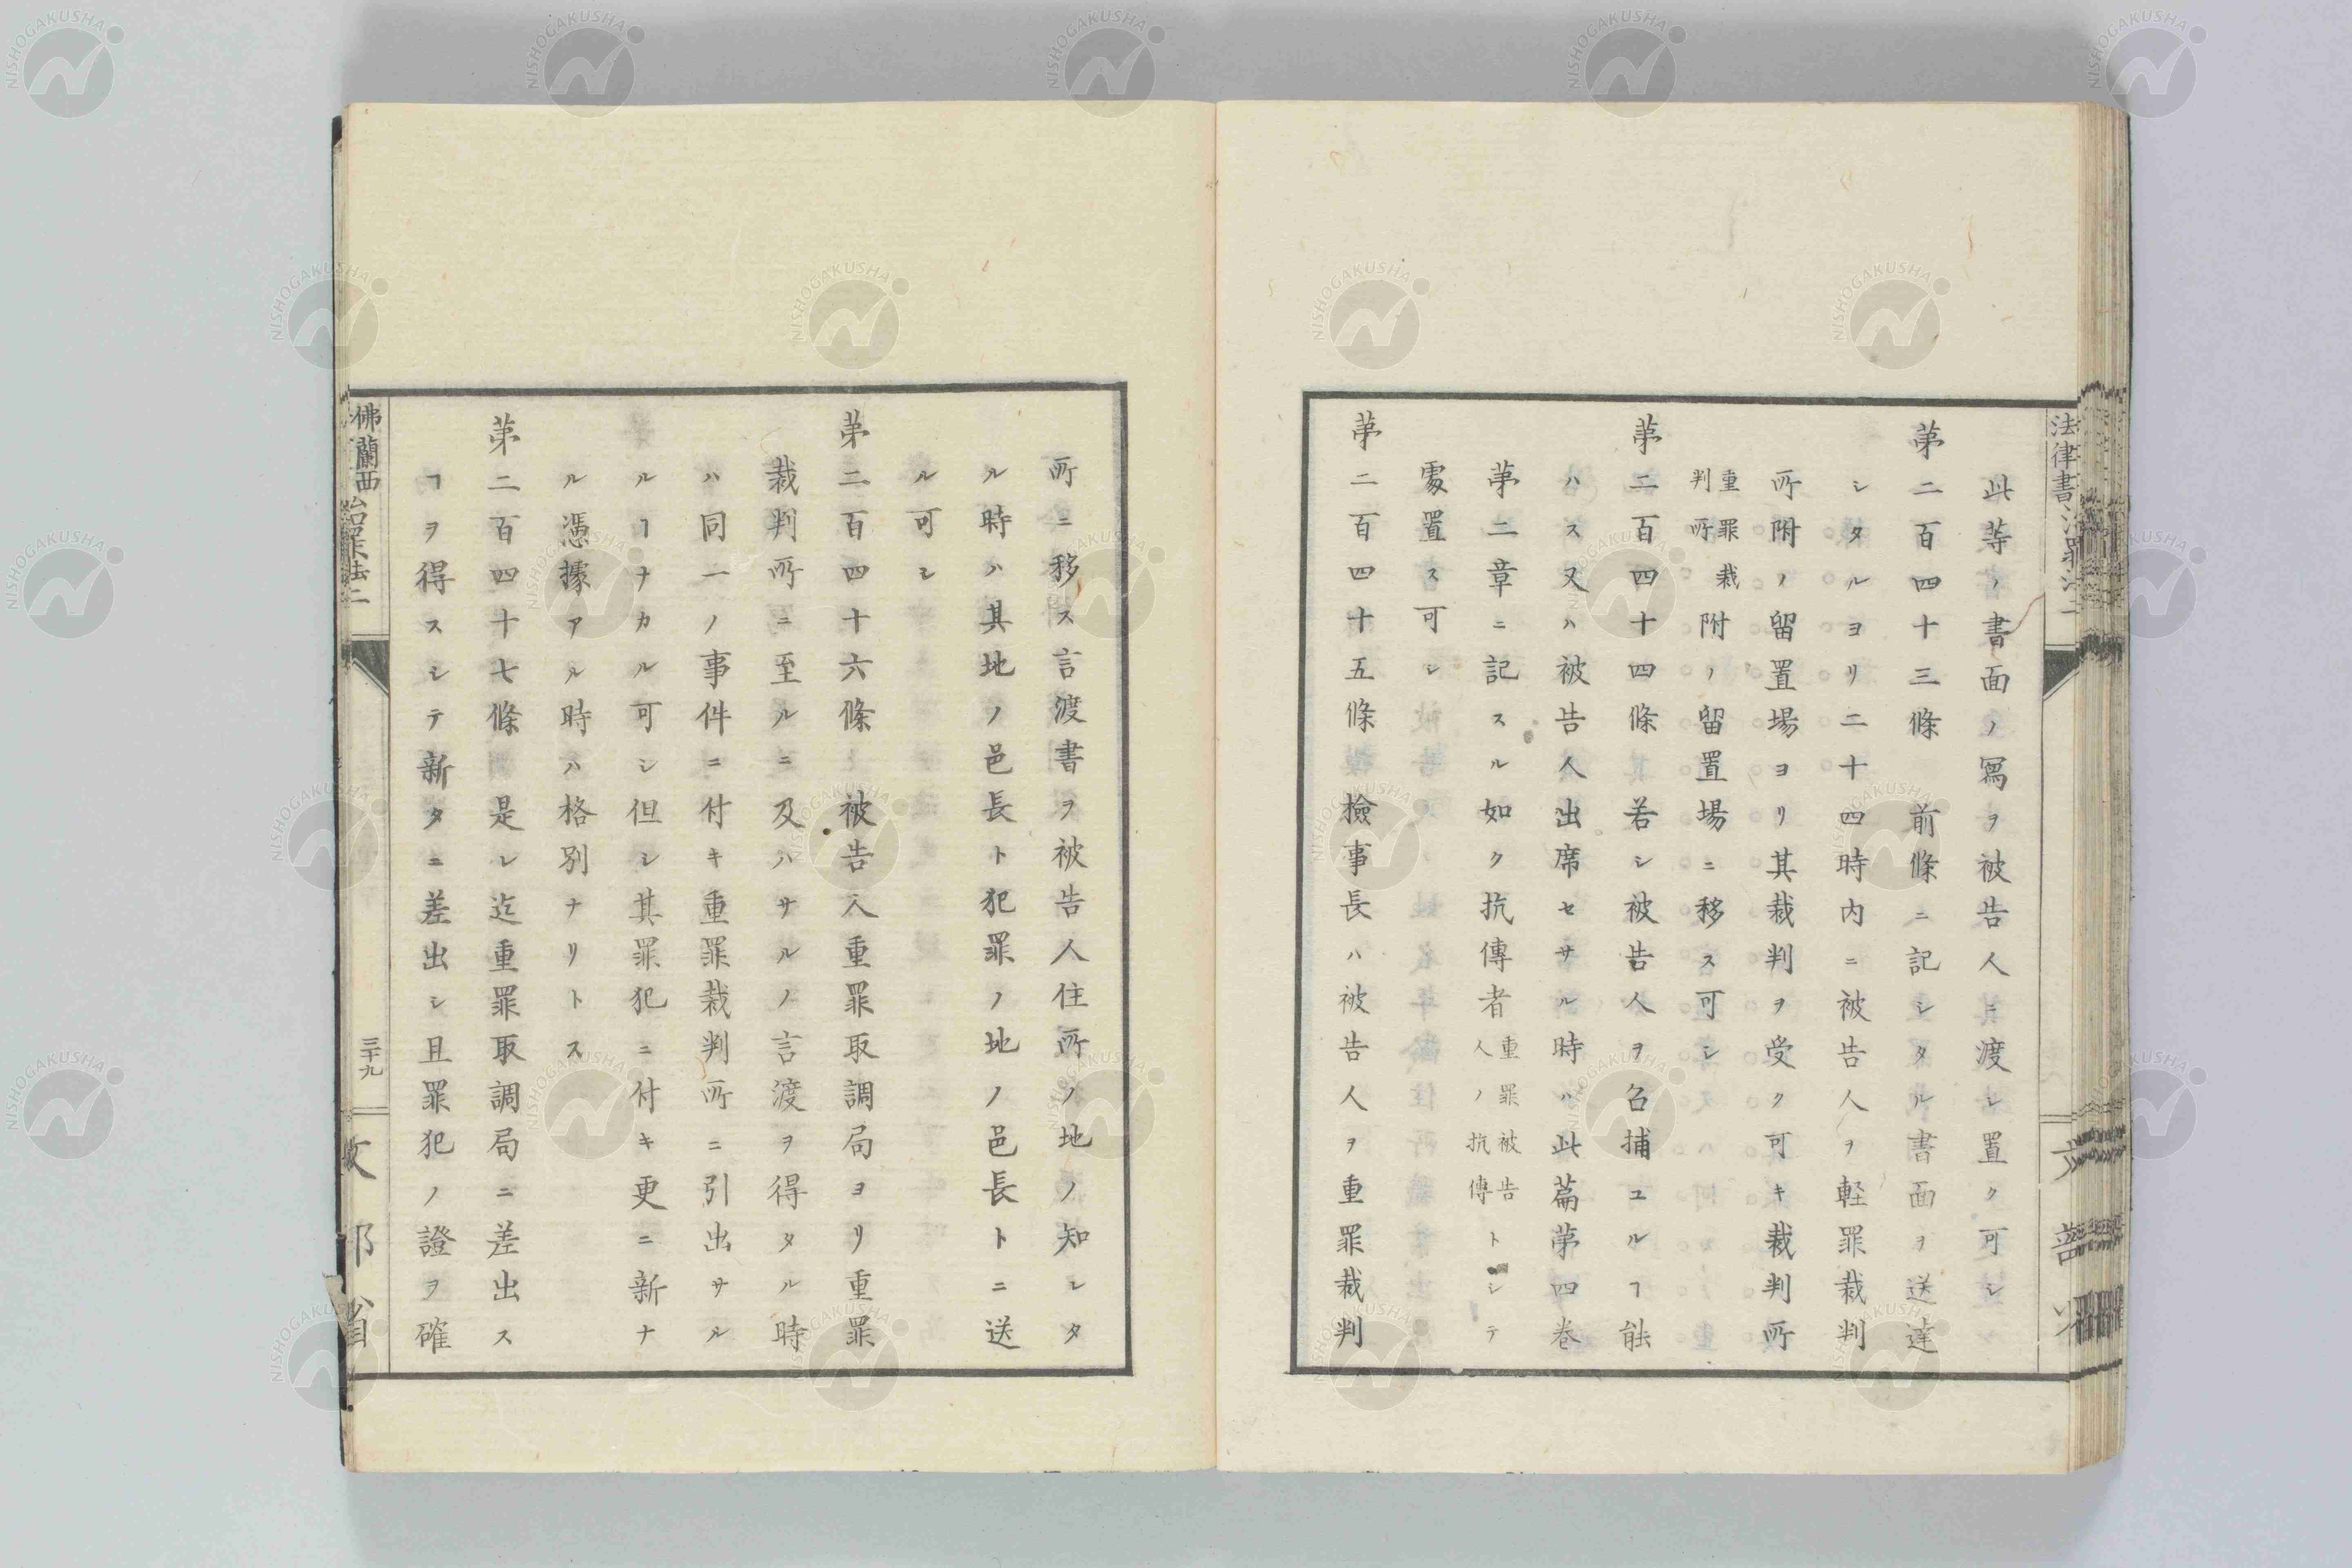 此等ノ書面ノ寫ヲ被告人ニ渡シ置ク可シ
第二百四十三條 前條ニ記シタル書面ヲ送達
シタルヨリ二十四時內ニ被告人ヲ軽罪裁判
所附ノ留置場ヨリ其裁判ヲ受ク可キ裁判所
重罪裁
判所
附ノ留置場ニ移ス可シ
第二百四十四條 若シ被告人ヲ召捕ユルヿ能
ハス又ハ被告人出席セサル時ハ此篇第四巻
第二章ニ記スル如ク抗傳者
重罪被告
人ノ抗傳
トシテ
處置ス可シ
第二百四十五條 檢事長ハ被告人ヲ重罪裁判
所ニ移ス言渡書ヲ被告人住所ノ地ノ知レタ
ル時ハ其地ノ邑長ト犯罪ノ地ノ邑長トニ送
ル可シ
第二百四十六條 被告人重罪取調局ヨリ重罪
裁判所ニ至ルニ及ハサルノ言渡ヲ得タル時
ハ同一ノ事件ニ付キ重罪裁判所ニ引出サル
ルヿナカル可シ但シ其罪犯ニ付キ更ニ新ナ
ル憑據アル時ハ格別ナリトス
第二百四十七條 是レ迄重罪取調局ニ差出ス
ヿヲ得スシテ新タニ差出シ且罪犯ノ證ヲ確
佛蘭西治罪法二
三十九
文部省
NISHOGAKUSHA